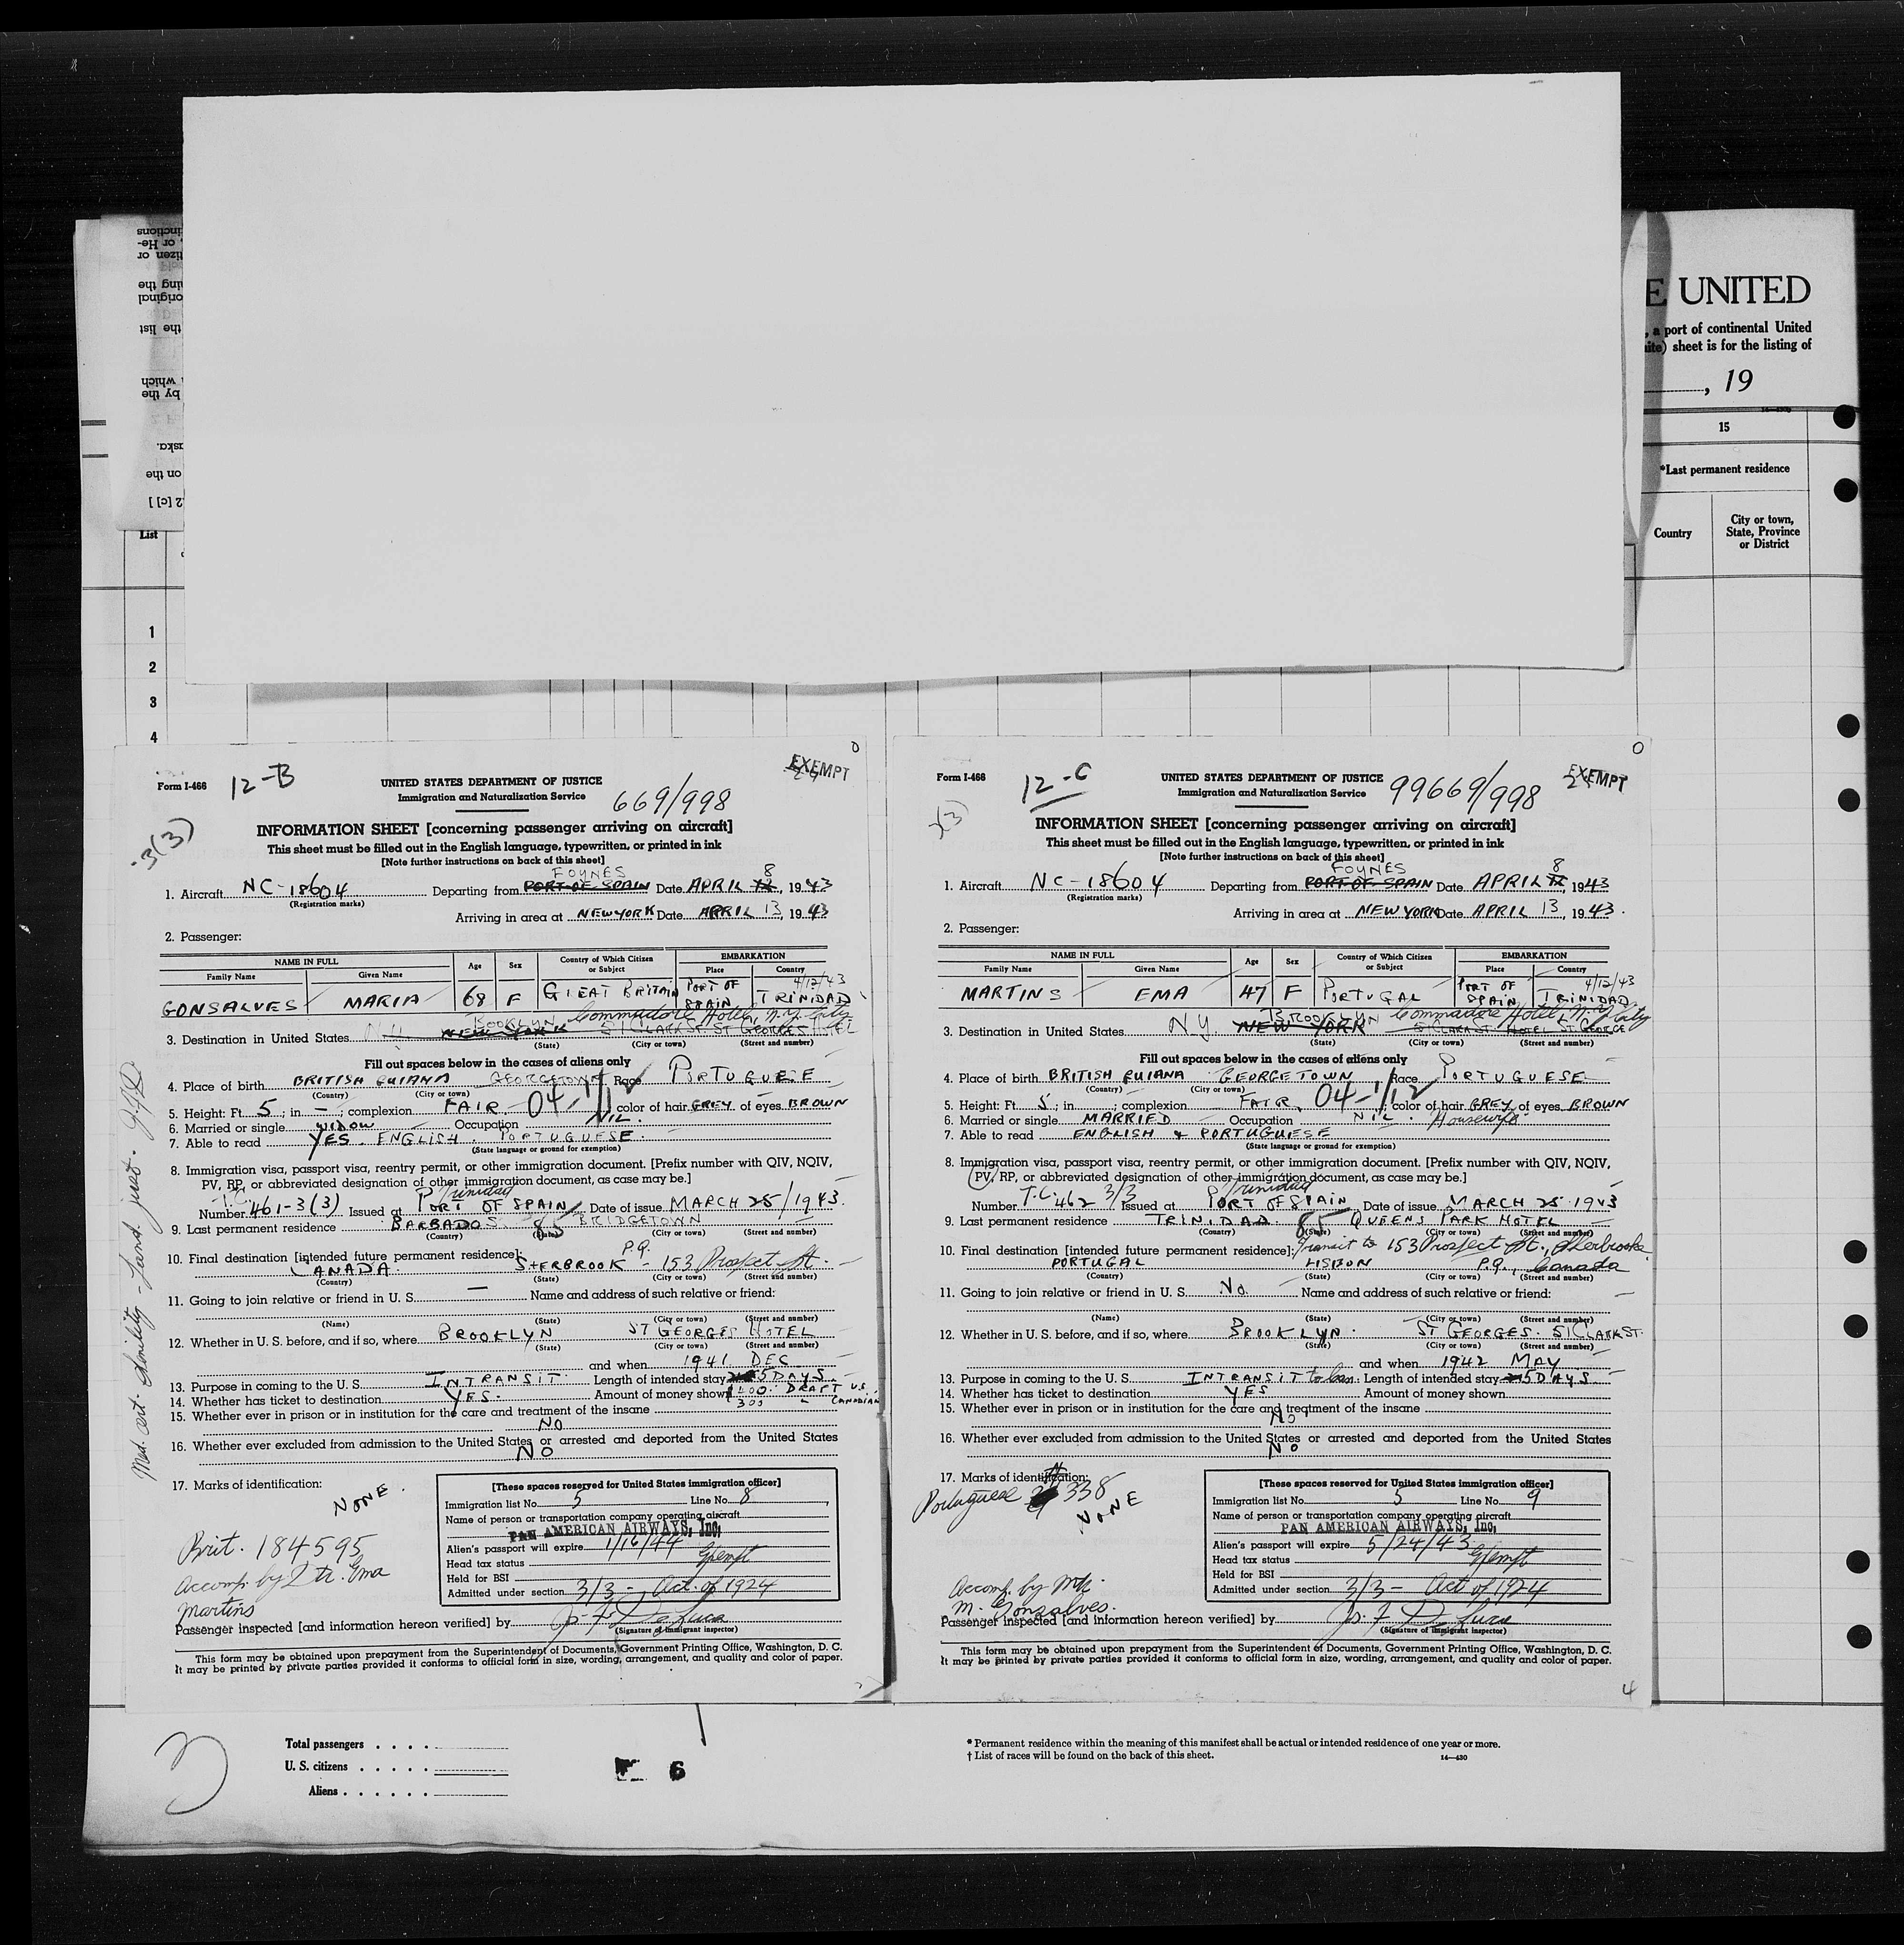 E UNITED
, a port of continental United
ite) sheet is for the listing of
, 19
15
*Last permanent residence
Country
City or town,
State, Province
or District
List
1
2
3
4
Form I-466
12-B
UNITED STATES DEPARTMENT OF JUSTICE
EXEMPT
Immigration and Naturalization Service
669/998
3(3)
INFORMATION SHEET [concerning passenger arriving on aircraft]
This sheet must be filled out in the English language, typewritten, or printed in ink
[Note further instructions on back of this sheet]
FOYNES
8
1. Aircraft NC-18604 Departing from PORT OF SPAIN Date APRIL 12, 1943
(Registration marks)
Arriving in area at NEW YORK Date APRIL 13, 1943
2. Passenger:
NAME IN FULL
Age
Sex
Country of Which Citizen
or Subject
EMBARKATION
Family Name
Given Name
Place
Country
4/12/43
GONSALVES MARIA 68 F GREAT BRITAIN PORT OF SPAIN TRINIDAD
BOOKLYN Commadore Hotel, N.Y. City
3. Destination in United States N.Y. NEW YORK 51 CLARK ST. ST GEORGES HOTEL
(State) (City or town) (Street and number)
Fill out spaces below in the cases of aliens only
4. Place of birth BRITISH GUIANA GEORGETOWN Race PORTUGUESE
(Country) (City or town)
5. Height: Ft. 5; in —; complexion FAIR 04-1/12 color of hair GREY of eyes BROWN
6. Married or single WIDOW Occupation NIL.
7. Able to read YES. ENGLISH. PORTUGUESE.
(State language or ground for exemption)
8. Immigration visa, passport visa, reentry permit, or other immigration document. [Prefix number with QIV, NQIV,
PV, RP, or abbreviated designation of other immigration document, as case may be.]
T.C. Trinidad
Number 461-3(3) Issued at PORT OF SPAIN Date of issue MARCH 25/1943.
9. Last permanent residence BARBADOS. 85 BRIDGETOWN
(Country) (State) (City or town) (Street and number)
10. Final destination [intended future permanent residence]: P.Q.
CANADA. STERBROOK - 153 Prospect St.
(Country) (State) (City or town) (Street and number)
11. Going to join relative or friend in U. S. — Name and address of such relative or friend:
(Name) (State) (City or town) (Street and number)
12. Whether in U. S. before, and if so, where BROOKLYN ST GEORGES HOTEL
(State) (City or town) (Street and number)
and when 1941 DEC
13. Purpose in coming to the U. S. INTRANSIT Length of intended stay 5 DAYS
14. Whether has ticket to destination YES. Amount of money shown DRAFT U.S.
300 - CANADIAN
15. Whether ever in prison or in institution for the care and treatment of the insane
NO
16. Whether ever excluded from admission to the United States or arrested and deported from the United States
NO
17. Marks of identification:
NONE.
Brit. 184595
Accomp. by Dtr. Ema
Martins
[These spaces reserved for United States immigration officer]
Immigration list No. 5 Line No. 8
Name of person or transportation company operating aircraft
PAN AMERICAN AIRWAYS, Inc,
Alien's passport will expire 1/16/44
Head tax status Exempt
Held for BSI
Admitted under section 3/3 - Act. of 1924
Passenger inspected [and information hereon verified] by
(Signature of immigrant inspector)
This form may be obtained upon prepayment from the Superintendent of Documents, Government Printing Office, Washington, D. C.
It may be printed by private parties provided it conforms to official form in size, wording, arrangement, and quality and color of paper.
Form I-466
12-C
UNITED STATES DEPARTMENT OF JUSTICE
EXEMPT
Immigration and Naturalization Service
99669/998
INFORMATION SHEET [concerning passenger arriving on aircraft]
This sheet must be filled out in the English language, typewritten, or printed in ink
[Note further instructions on back of this sheet]
FOYNES
8
1. Aircraft NC-18604 Departing from PORT OF SPAIN Date APRIL 12, 1943
(Registration marks)
Arriving in area at NEW YORK Date APRIL 13, 1943.
2. Passenger:
NAME IN FULL
Age
Sex
Country of Which Citizen
or Subject
EMBARKATION
Family Name
Given Name
Place
Country
4/12/43
MARTINS EMA 47 F PORTUGAL PORT OF SPAIN TRINIDAD
BROOKLYN Commadore Hotel, N.Y. City
3. Destination in United States N.Y. NEW YORK 51 CLARK ST. HOTEL ST GEORGE
(State) (City or town) (Street and number)
Fill out spaces below in the cases of aliens only
4. Place of birth BRITISH GUIANA GEORGETOWN Race PORTUGUESE
(Country) (City or town)
5. Height: Ft. 5; in ; complexion FAIR. 04-1/12; color of hair GREY of eyes BROWN
6. Married or single MARRIED Occupation NIL. Housewife
7. Able to read ENGLISH & PORTUGUESE
(State language or ground for exemption)
8. Immigration visa, passport visa, reentry permit, or other immigration document. [Prefix number with QIV, NQIV,
PV, RP, or abbreviated designation of other immigration document, as case may be.]
Trinidad
Number T.C. 462 3/3 Issued at PORT OF SPAIN Date of issue MARCH 25 1943
9. Last permanent residence TRINIDAD. 85 QUEENS PARK HOTEL
(Country) (State) (City or town) (Street and number)
10. Final destination [intended future permanent residence]: Transit to 153 Prospect St., Sherbrooke
PORTUGAL LISBON P.Q., Canada
(Country) (State) (City or town) (Street and number)
11. Going to join relative or friend in U. S. No. Name and address of such relative or friend:
(Name) (State) (City or town) (Street and number)
12. Whether in U. S. before, and if so, where BROOKLYN. ST GEORGES. 51 CLARK ST.
(State) (City or town) (Street and number)
and when 1942 MAY
13. Purpose in coming to the U. S. INTRANSIT to Can. Length of intended stay 5 DAYS
14. Whether has ticket to destination YES Amount of money shown
15. Whether ever in prison or in institution for the care and treatment of the insane
NO
16. Whether ever excluded from admission to the United States or arrested and deported from the United States
NO
17. Marks of identification:
Portuguese 338
NONE
Accomp. by Mth.
M. Gonsalves.
[These spaces reserved for United States immigration officer]
Immigration list No. 5 Line No. 9
Name of person or transportation company operating aircraft
PAN AMERICAN AIRWAYS, Inc,
Alien's passport will expire 5/24/43
Head tax status Exempt
Held for BSI
Admitted under section 3/3 - Act of 1924
Passenger inspected [and information hereon verified] by
(Signature of immigrant inspector)
This form may be obtained upon prepayment from the Superintendent of Documents, Government Printing Office, Washington, D. C.
It may be printed by private parties provided it conforms to official form in size, wording, arrangement, and quality and color of paper.
4
3
Total passengers . . . .
U. S. citizens . . . . .
Aliens . . . . . .
6
* Permanent residence within the meaning of this manifest shall be actual or intended residence of one year or more.
† List of races will be found on the back of this sheet.